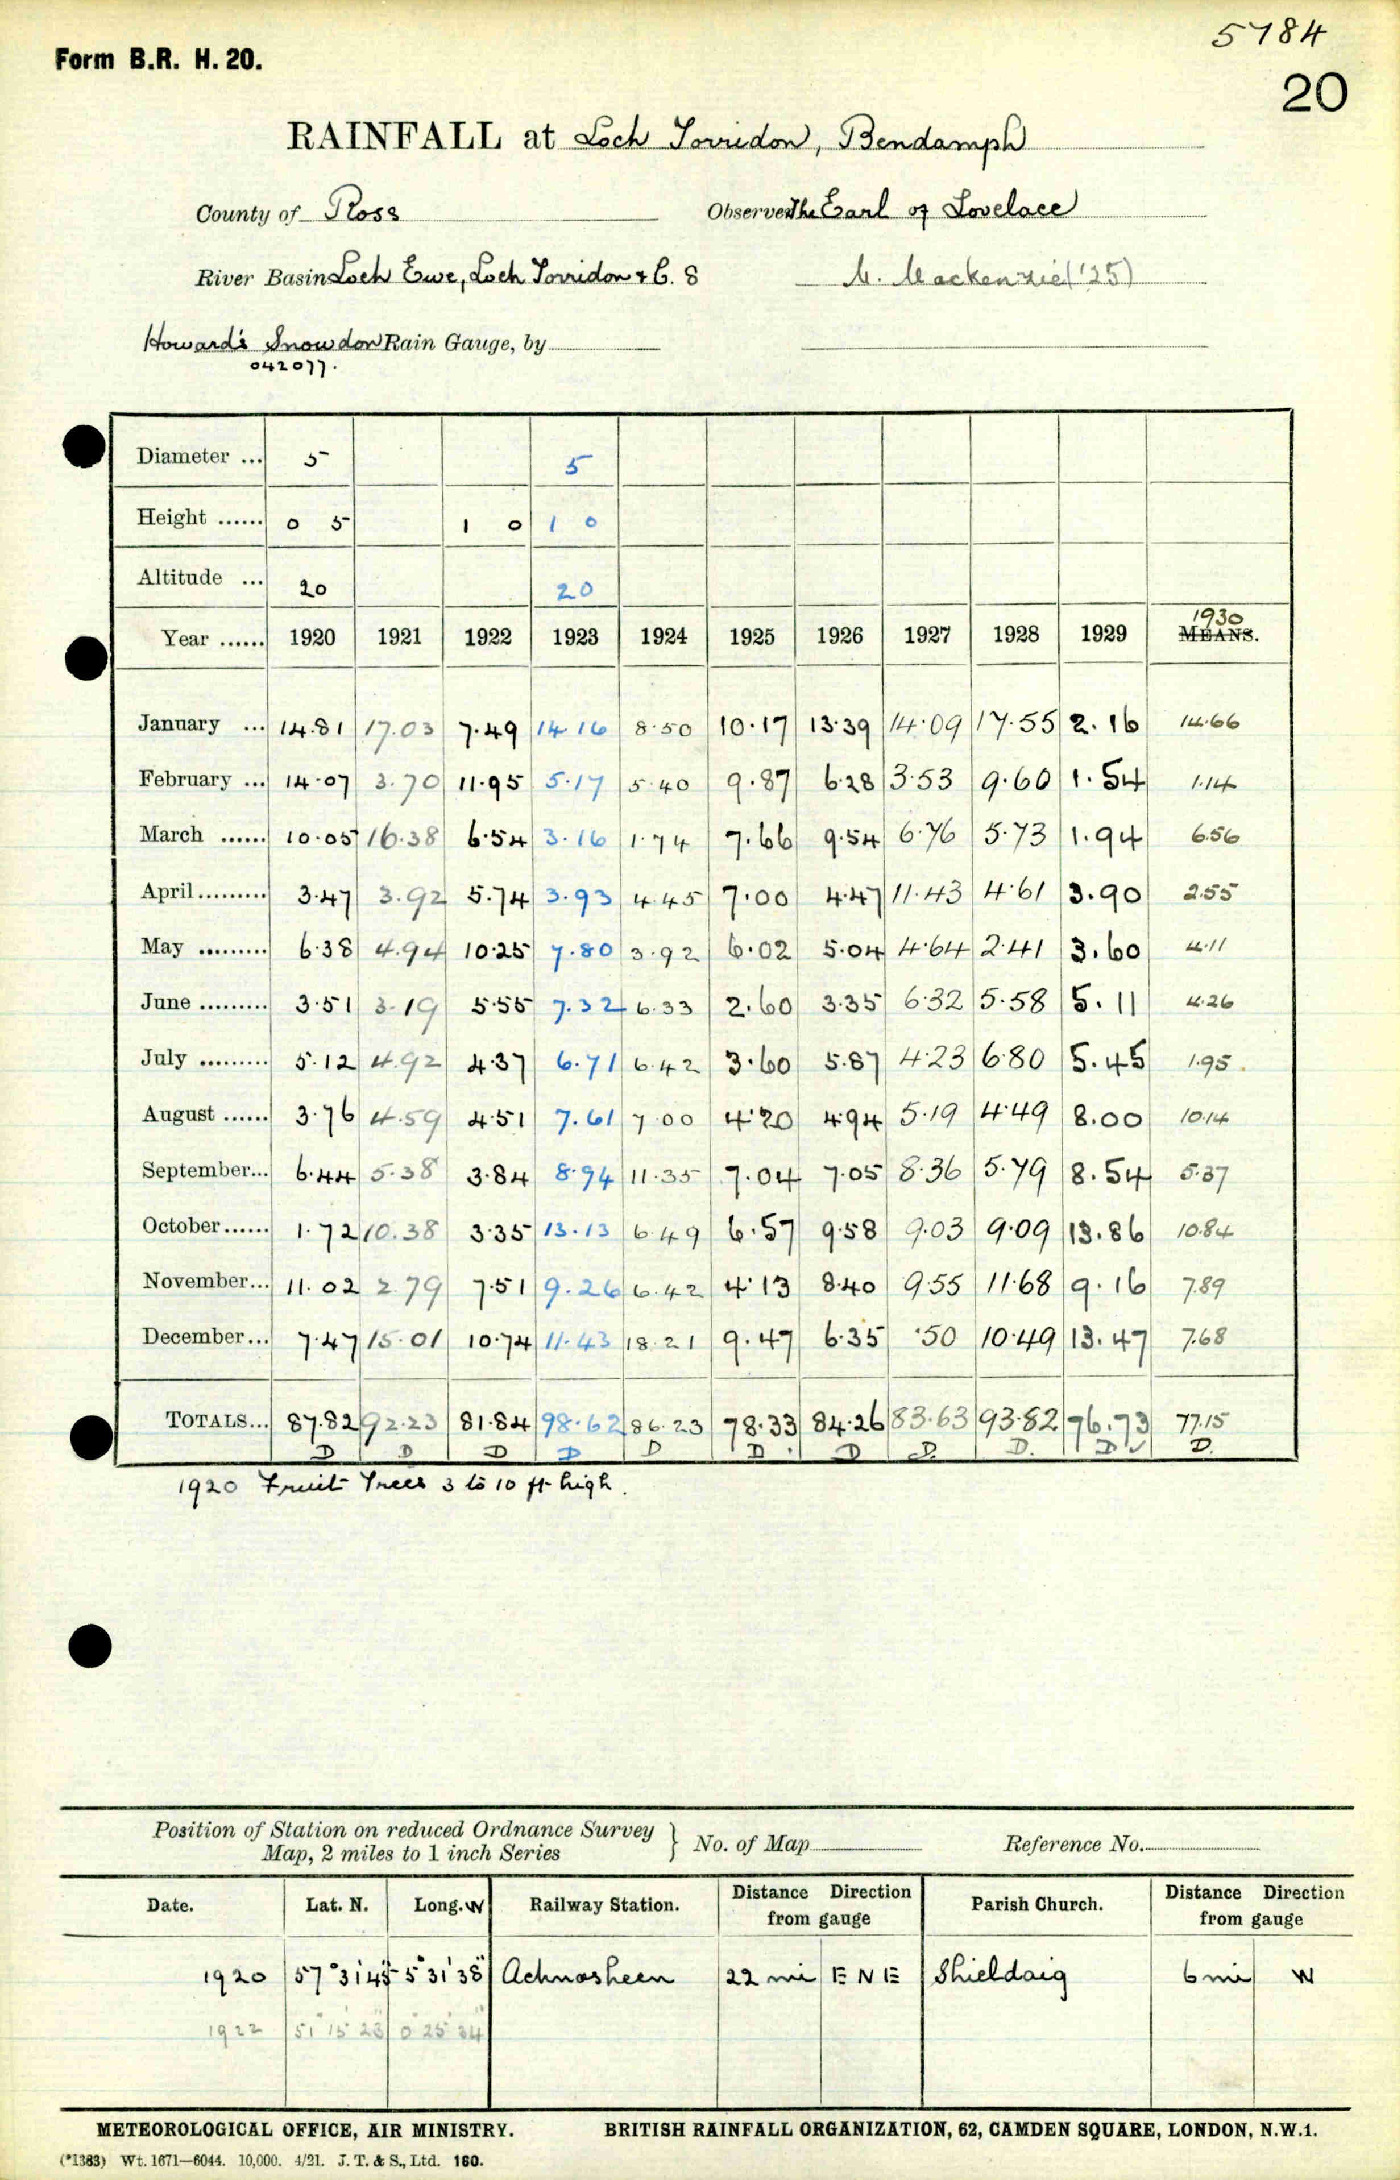 5784
Form B.R. H. 20.
20
RAINFALL at Loch Torridon, Bendamph
County of Ross Observer The Earl of Lovelace
River Basin Loch Ewe, Loch Torridon & C. 8 M. Mackenzie ('25)
Howard's Snowdon Rain Gauge, by
042077.
Diameter ... 5 5
Height ...... 0 5 1 0 1 0
Altitude ... 20 20
1930
Year ...... 1920 1921 1922 1923 1924 1925 1926 1927 1928 1929 MEANS.
January ... 14.81 17.03 7.49 14.16 8.50 10.17 13.39 14.09 17.55 2.16 14.66
February ... 14.07 3.70 11.95 5.17 5.40 9.87 6.28 3.53 9.60 1.54 1.14
March ...... 10.05 16.38 6.54 3.16 1.74 7.66 9.54 6.76 5.73 1.94 6.56
April ......... 3.47 3.92 5.74 3.93 4.45 7.00 4.47 11.43 4.61 3.90 2.55
May ......... 6.38 4.94 10.25 7.80 3.92 6.02 5.04 4.64 2.41 3.60 4.11
June ......... 3.51 3.19 5.55 7.32 6.33 2.60 3.35 6.32 5.58 5.11 4.26
July ......... 5.12 4.92 4.37 6.71 6.42 3.60 5.87 4.23 6.80 5.45 1.95
August ...... 3.76 4.59 4.51 7.61 7.00 4.20 4.94 5.19 4.49 8.00 10.14
September... 6.44 5.38 3.84 8.94 11.35 7.04 7.05 8.36 5.79 8.54 5.37
October...... 1.72 10.38 3.35 13.13 6.49 6.57 9.58 9.03 9.09 13.86 10.84
November... 11.02 2.79 7.51 9.26 6.42 4.13 8.40 9.55 11.68 9.16 7.89
December... 7.47 15.01 10.74 11.43 18.21 9.47 6.35 .50 10.49 13.47 7.68
TOTALS... 87.82 92.23 81.84 98.62 86.23 78.33 84.26 83.63 93.82 76.73 77.15
D D D D D D D D. D. D ✓ D.
1920 Fruit Trees 3 to 10 ft high.
Position of Station on reduced Ordnance Survey
Map, 2 miles to 1 inch Series } No. of Map Reference No.
Date. Lat. N. Long. W Railway Station. Distance Direction from gauge Parish Church. Distance Direction from gauge
1920 57° 31' 45" 5° 31' 38" Achnasheen 22 mi E N E Shieldaig 6 mi W
1922 51° 15' 23" 0° 25' 34"
METEOROLOGICAL OFFICE, AIR MINISTRY. BRITISH RAINFALL ORGANIZATION, 62, CAMDEN SQUARE, LONDON, N.W.1.
(*1383) Wt. 1671—6044. 10,000. 4/21. J. T. & S., Ltd. 160.